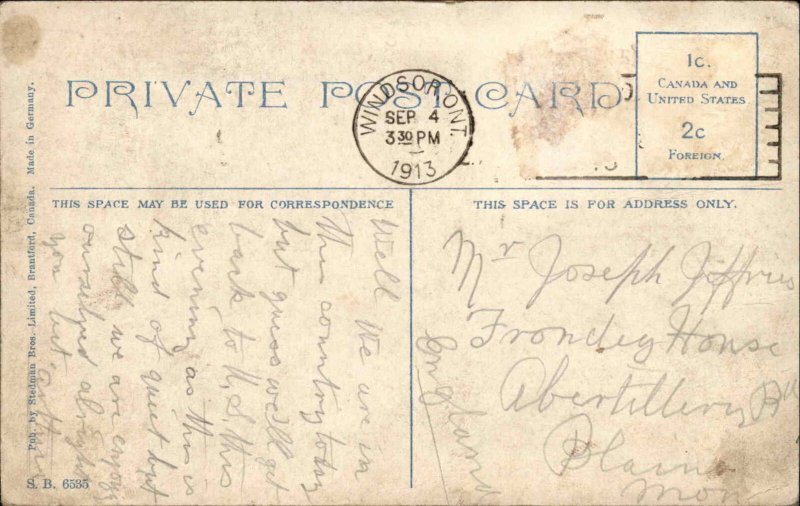 PRIVATE POST CARD
WINDSOR, ONT.
SEP 4
3 30 PM
1913
1c.
CANADA AND
UNITED STATES
2c
FOREIGN.
THIS SPACE MAY BE USED FOR CORRESPONDENCE
THIS SPACE IS FOR ADDRESS ONLY.
Well We are in
this country today
but guess we'll get
back to U.S. this
evening as this is
kind of quiet but
still we are enjoying
ourselves alright
you bet
Mr Joseph Jeffries
Frondeg House
Abertillery
Blaina
Mon
England
Pub. by Stedman Bros. Limited, Brantford, Canada. Made in Germany.
S. B. 6535